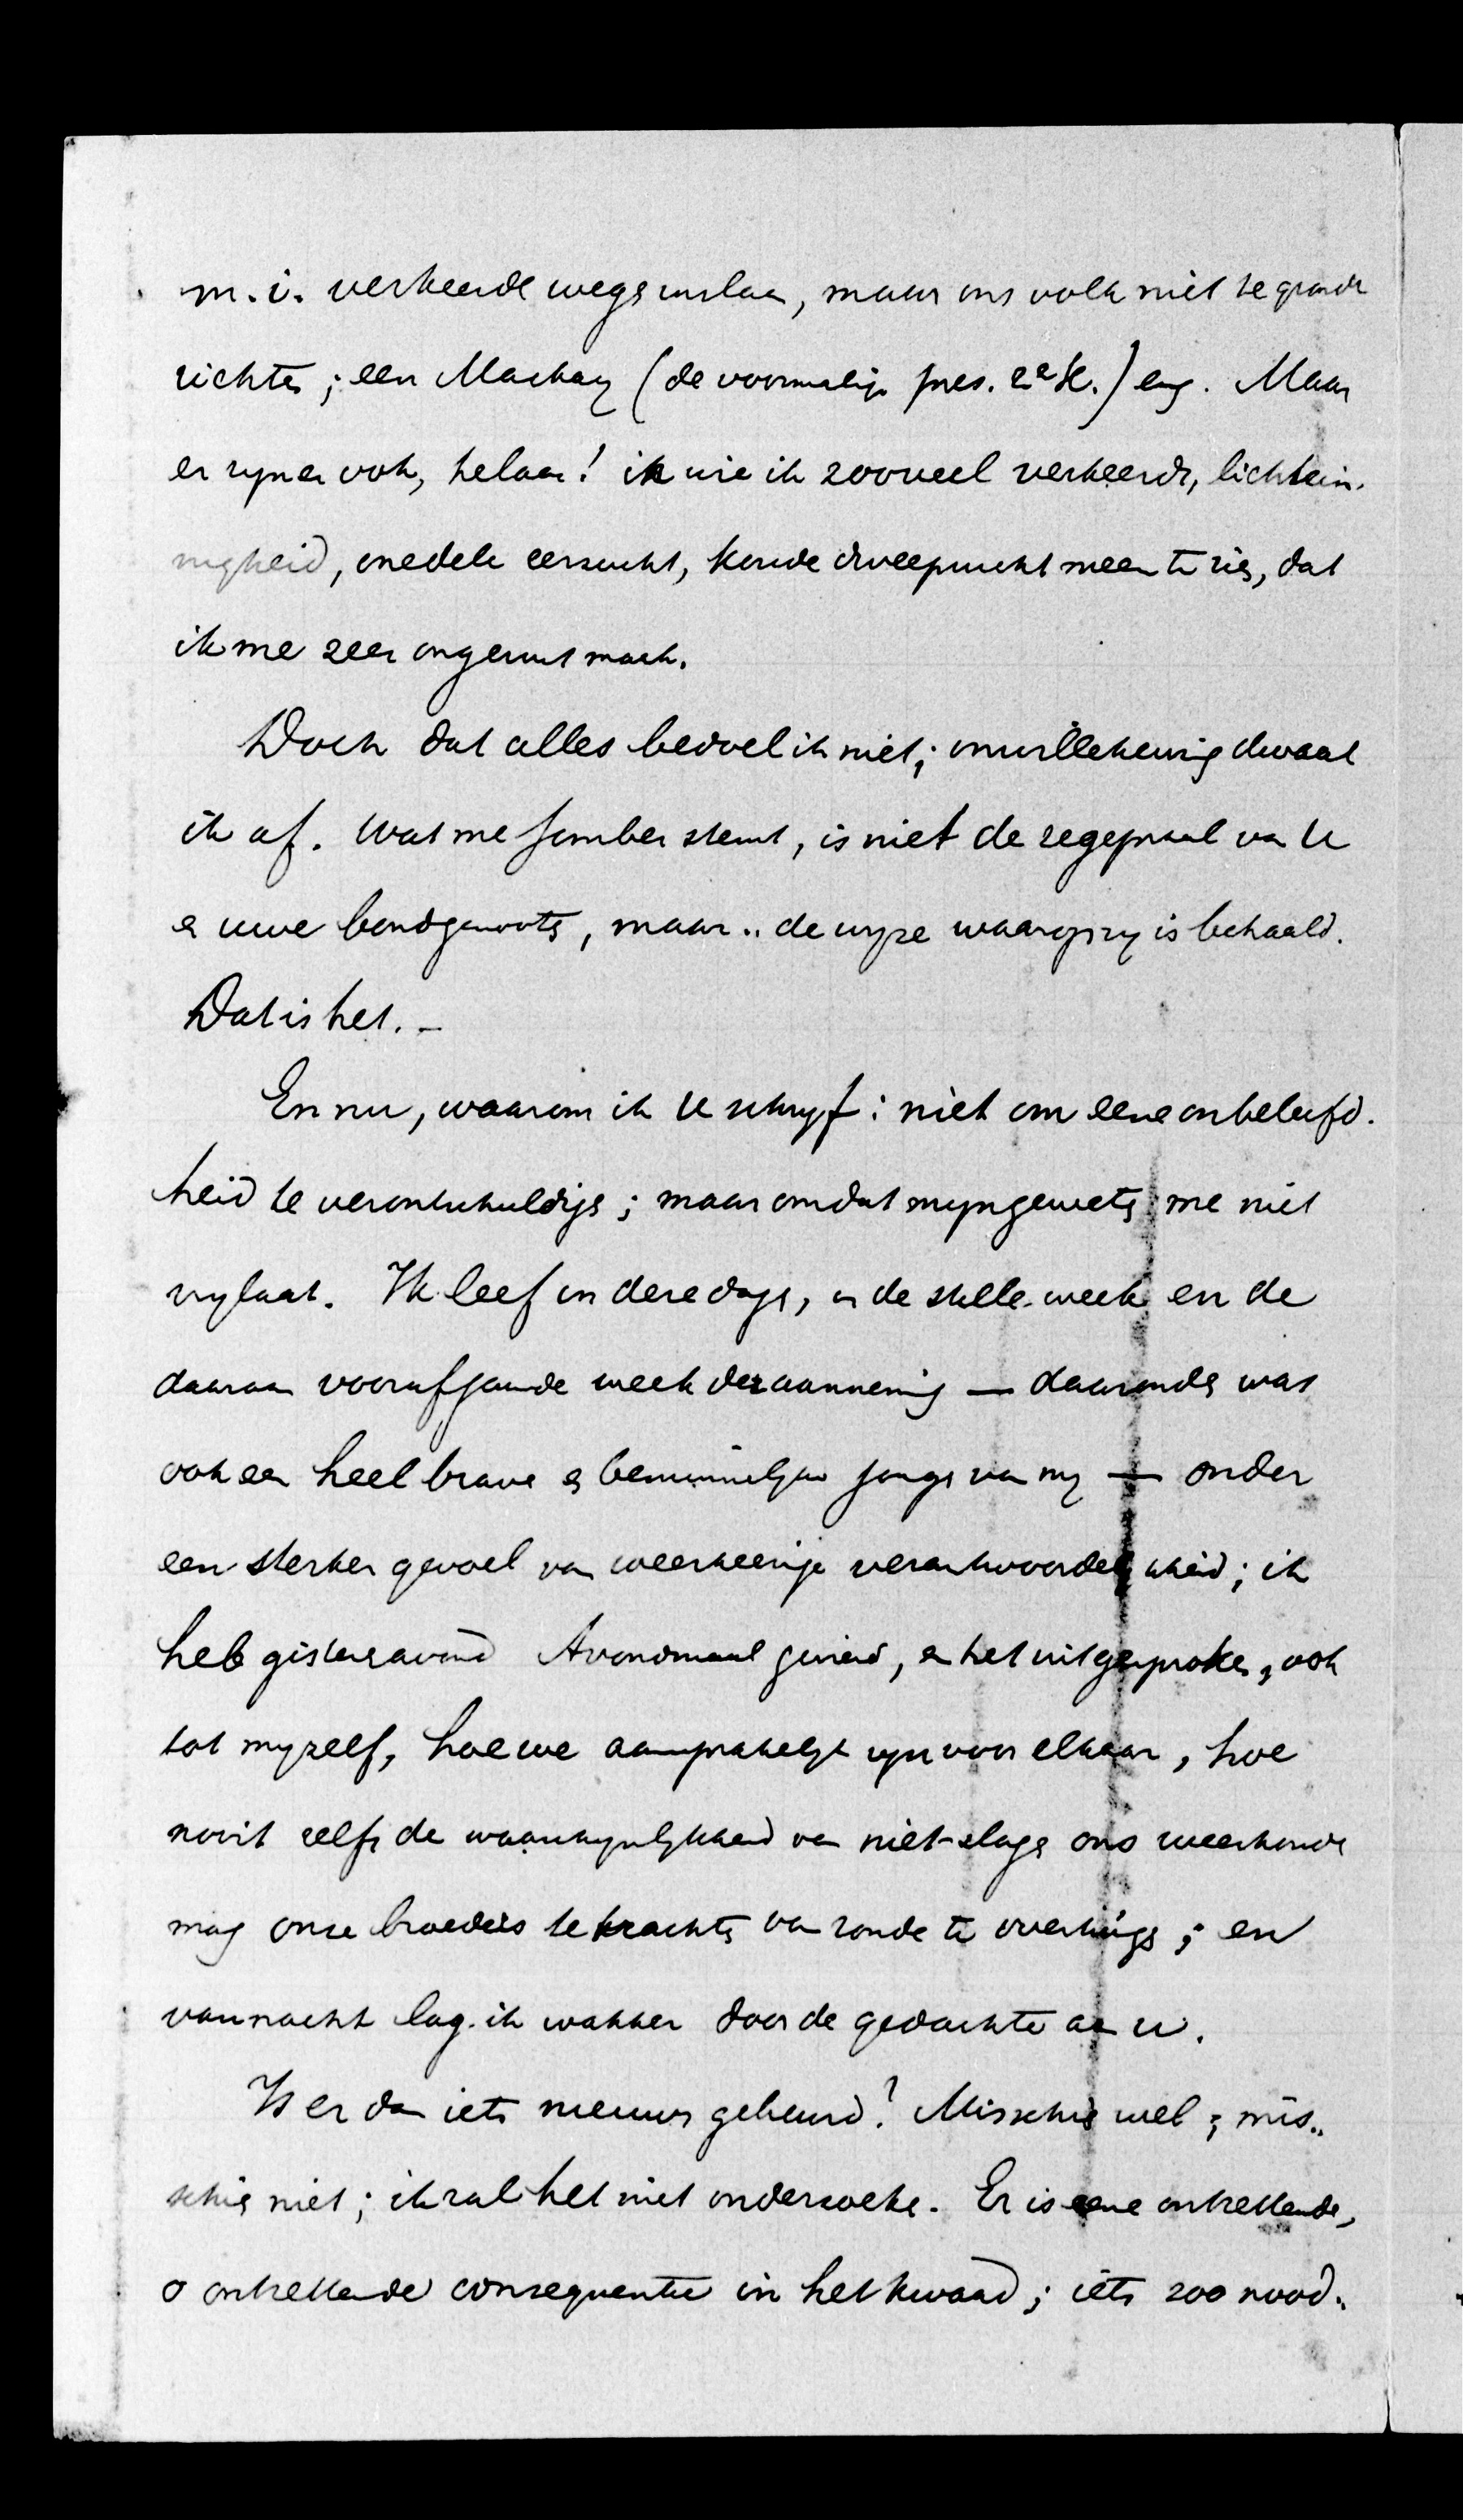 m.i. verkeerde wegen inslaan, maar ons volk niet te gronde
richten; een Mackay (de voormalige pres. 2e K.) enz. Maar
er zijn er ook, helaas! in wie ik zooveel verkeerds, lichtzin-
nigheid, onedele eerzucht, koude dweepzucht meen te zien, dat
ik me zeer ongerust maak.
Doch dat alles bedoel ik niet; onwillekeurig dwaal
ik af. Wat me somber stemt, is niet de zegepraal van U
en uwe bondgenooten, maar .. de wijze waarop zij is behaald.
Dat is het. –
En nu, waarom ik U schrijf: niet om eene onbeleefd-
heid te verontschuldigen; maar omdat mijn geweten me niet
vrijlaat. Ik leef in deze dagen, in de stille week en de
daaraan voorafgaande week der aanneming — daaronder was
ook een heel brave en beminnelijke jongen van mij — onder
een sterker gevoel van weerkeerige verantwoordelijkheid; ik
heb gisterenavond Avondmaal gevierd, en het uitgesproken, ook
tot mijzelf, hoe we aansprakelijk zijn voor elkaar, hoe
nooit zelfs de waarschijnlijkheid van niet-slagen ons weerhouden
mag onze broeders te trachten van zonde te overtuigen; en
vannacht lag ik wakker door de gedachte aan u.
Is er dan iets nieuws gebeurd? Misschien wel; mis-
schien niet; ik zal het niet onderzoeken. Er is eene ontzettende,
o ontzettende consequentie in het kwaad; iets zoo nood-